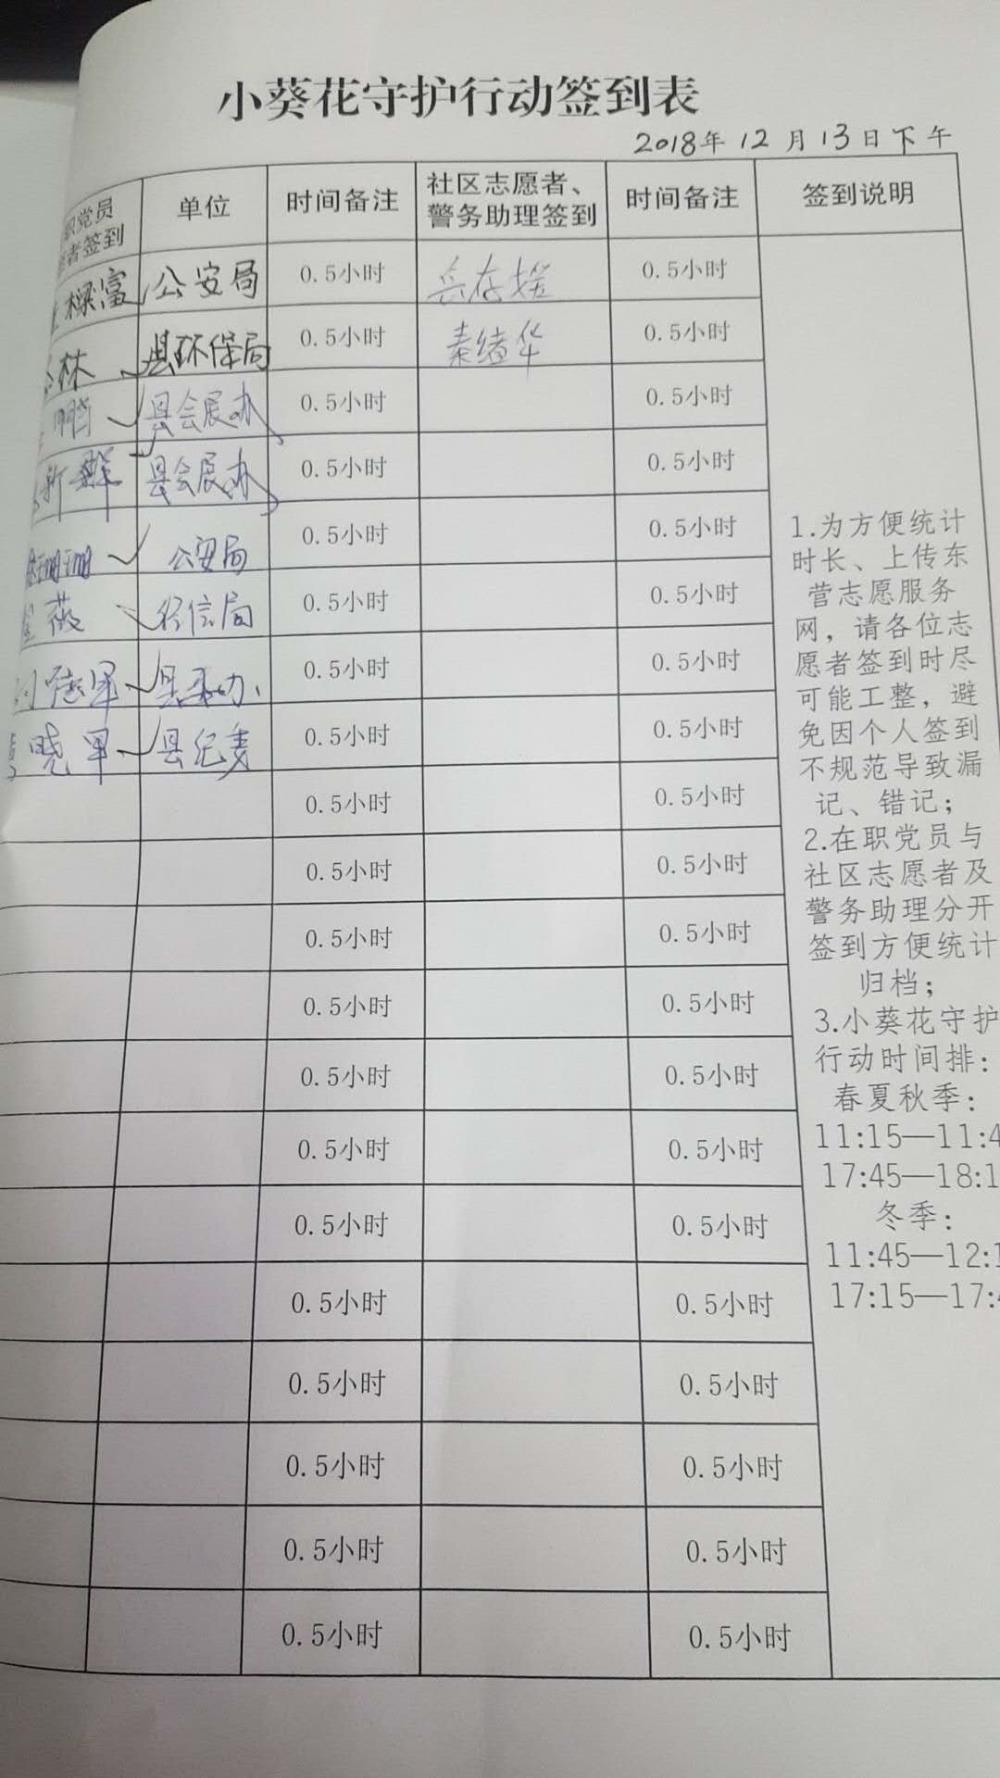 小葵花守护行动签到表
2018年12月13日下午
职党员
者签到
单位
时间备注
社区志愿者、
警务助理签到
时间备注
签到说明
樑富 公安局 0.5小时 0.5小时
林 县环保局 0.5小时 秦绪华 0.5小时
鹏 县会展办 0.5小时 0.5小时
新群 县会展办 0.5小时 0.5小时
珊珊 公安局 0.5小时 0.5小时
薇 信局 0.5小时 0.5小时
德军 0.5小时 0.5小时
晓军 县纪委 0.5小时 0.5小时
0.5小时 0.5小时
0.5小时 0.5小时
0.5小时 0.5小时
0.5小时 0.5小时
0.5小时 0.5小时
0.5小时 0.5小时
0.5小时 0.5小时
0.5小时 0.5小时
0.5小时 0.5小时
0.5小时 0.5小时
0.5小时 0.5小时
0.5小时 0.5小时
1.为方便统计
时长、上传东
营志愿服务
网，请各位志
愿者签到时尽
可能工整，避
免因个人签到
不规范导致漏
记、错记；
2.在职党员与
社区志愿者及
警务助理分开
签到方便统计
归档；
3.小葵花守护
行动时间排：
春夏秋季：
11:15—11:4
17:45—18:1
冬季：
11:45—12:1
17:15—17:4